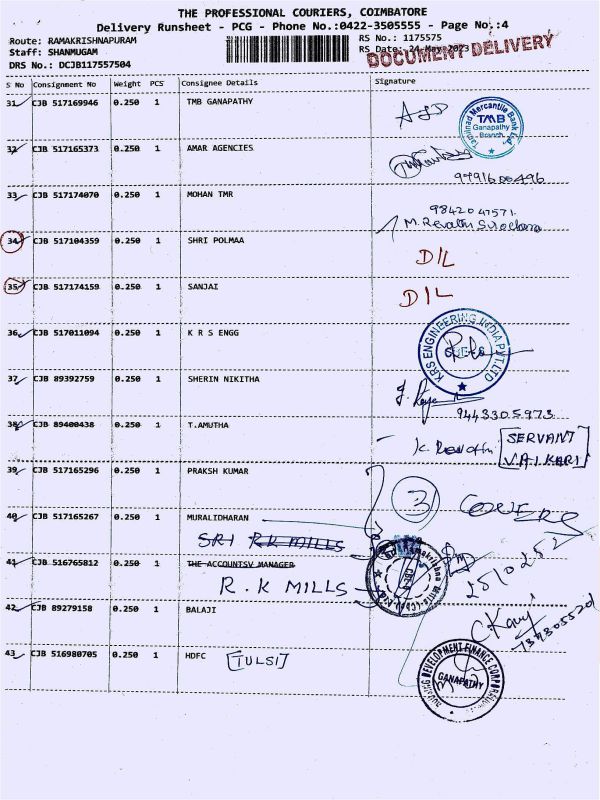 THE PROFESSIONAL COURIERS, COIMBATORE
Delivery Runsheet - PCG - Phone No.:0422-3505555 - Page No.:4
Route: RAMAKRISHNAPURAM
Staff: SHANMUGAM
DRS No.: DCJB117557504
RS No.: 1175575
RS Date: 24-May-2023
DOCUMENT DELIVERY
S No Consignment No Weight PCS Consignee Details Signature
31 CJB 517169946 0.250 1 TMB GANAPATHY
Tamilnad Mercantile Bank Ltd.
TMB
Ganapathy
Branch
32 CJB 517165373 0.250 1 AMAR AGENCIES
33 CJB 517174070 1 MOHAN TMR
9842047571
34 CJB 517104359 0.250 1 SHRI POLMAA
D/L
35 CJB 517174159 0.250 1 SANJAI
D/L
36 CJB 517011094 0.250 1 K R S ENGG
KRS ENGINEERING INDIA PVT LTD
37 CJB 89392759 0.250 1 SHERIN NIKITHA
9443305973
38 CJB 89400438 0.250 1 T.AMUTHA
K. Revathi
SERVANT
39 CJB 517165296 0.250 1 PRAKSH KUMAR
3 COVERS
40 CJB 517165267 0.250 1 MURALIDHARAN
SRI RK MILLS
41 CJB 516765812 0.250 1 THE ACCOUNTSV MANAGER
R.K MILLS
2510252
42 CJB 89279158 0.250 1 BALAJI
43 CJB 516980705 0.250 1 HDFC [TULSI]
HOUSING DEVELOPMENT FINANCE CORPORATION
GANAPATHY